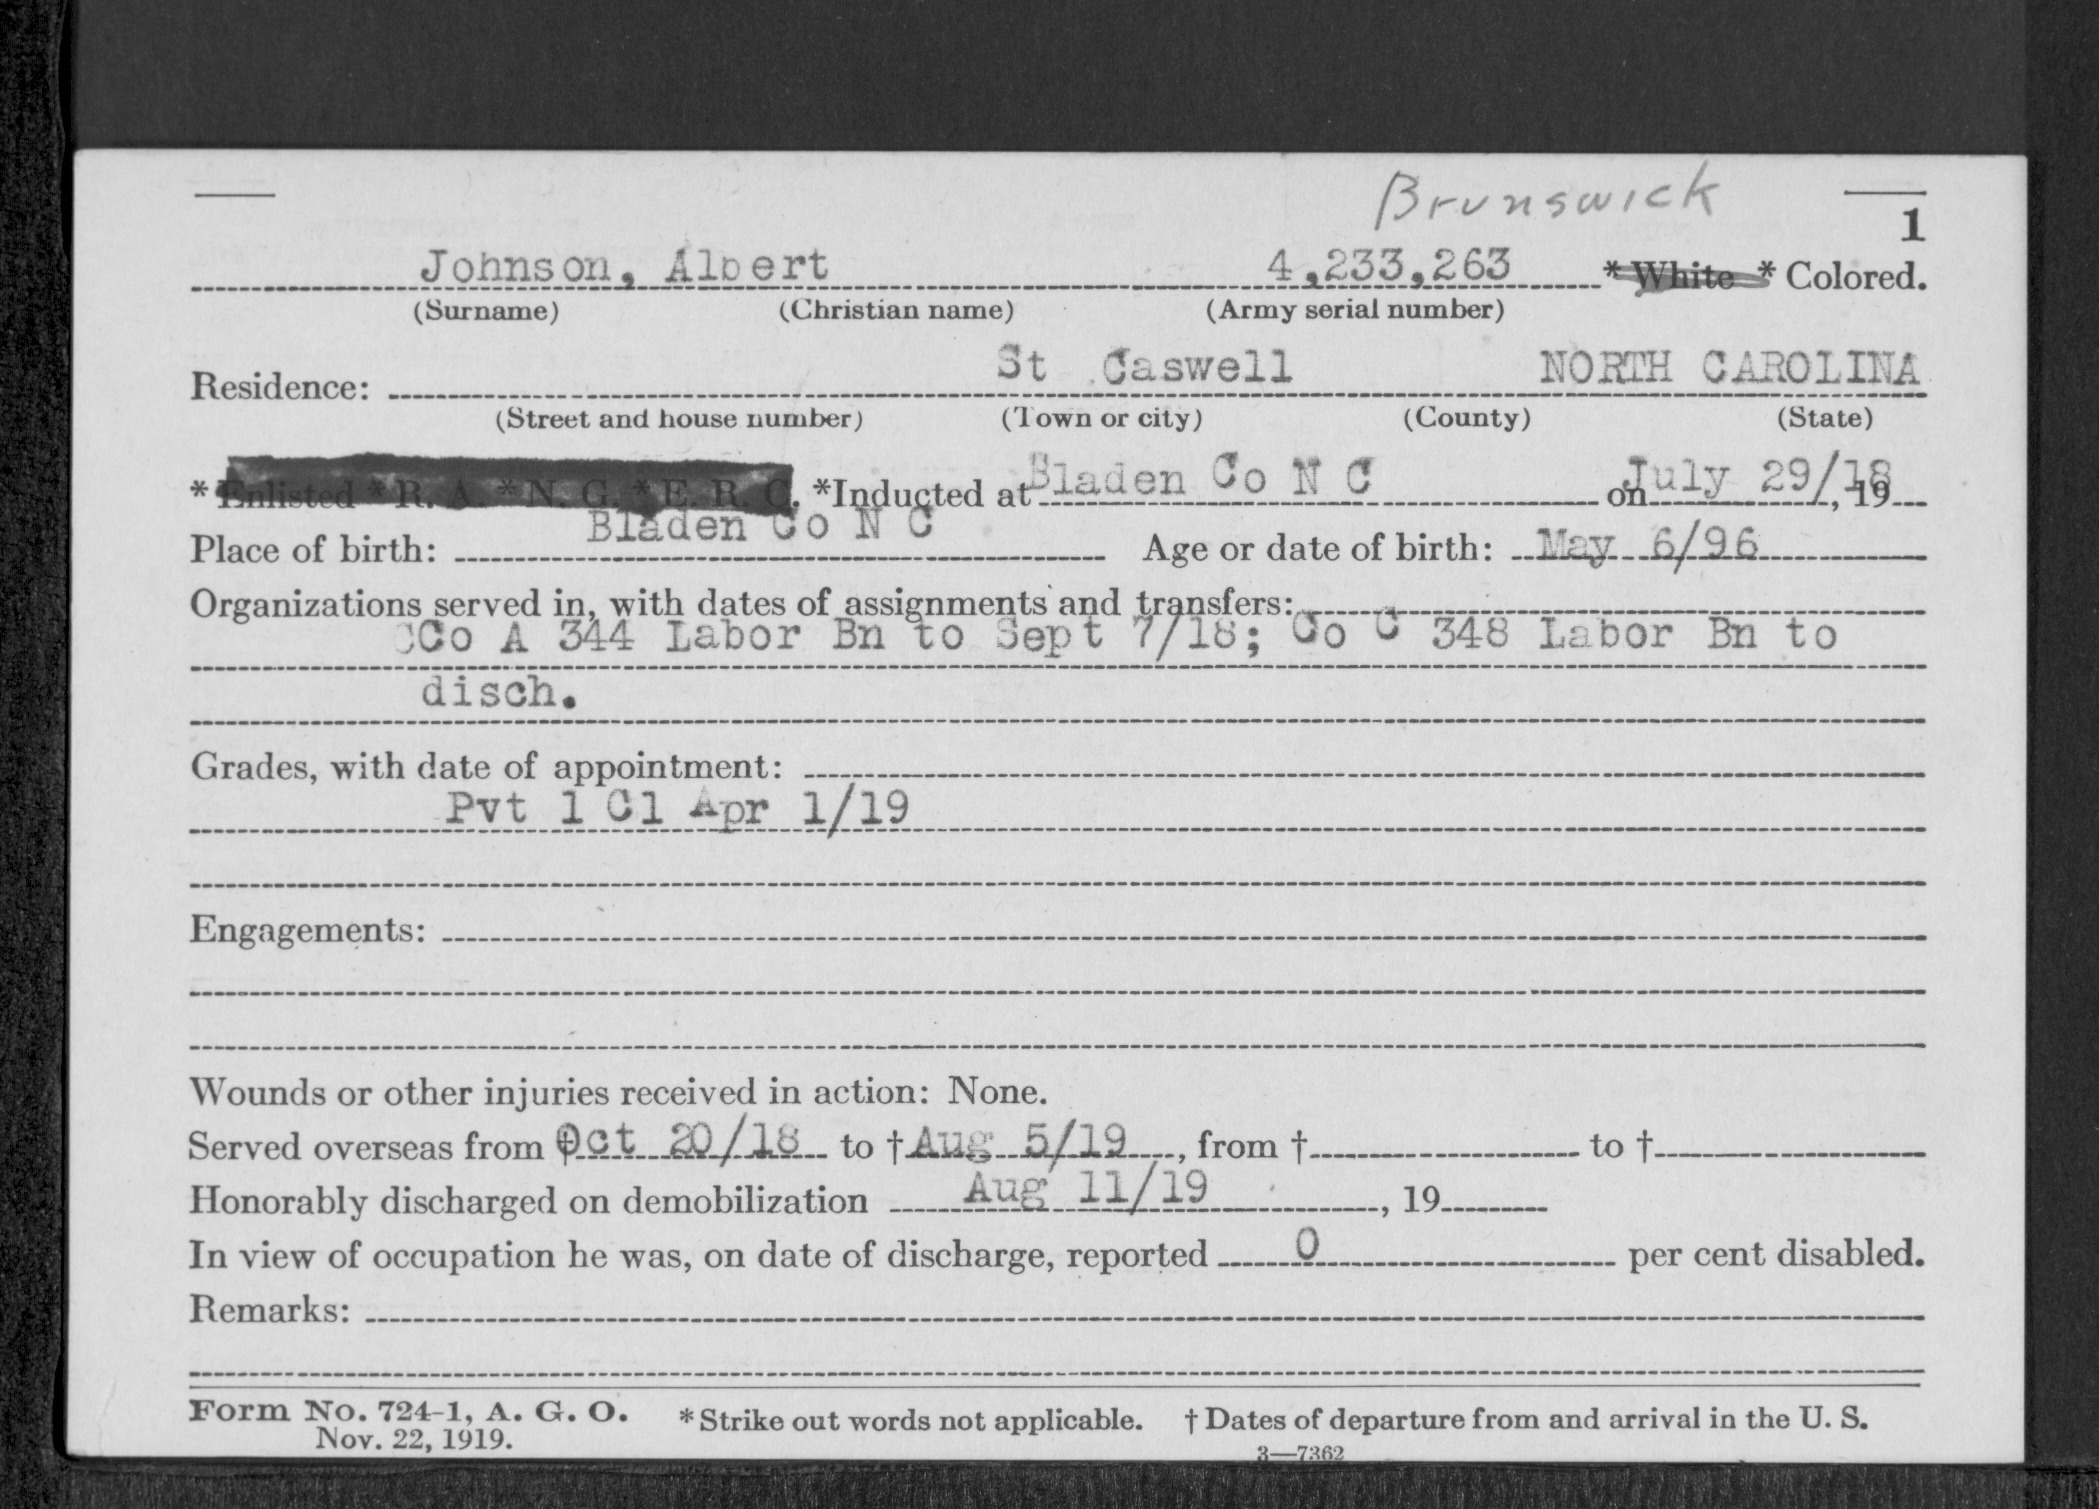 Brunswick
1
Johnson, Albert 4,233,263 * White * Colored.
(Surname) (Christian name) (Army serial number)
Residence: St Caswell NORTH CAROLINA
(Street and house number) (Town or city) (County) (State)
* Enlisted * R. A. * N. G. * E. R. C. *Inducted at Bladen Co N C on July 29/18, 19
Place of birth: Bladen Co N C Age or date of birth: May 6/96
Organizations served in, with dates of assignments and transfers:
CCo A 344 Labor Bn to Sept 7/18; Co C 348 Labor Bn to
disch.
Grades, with date of appointment:
Pvt 1 Cl Apr 1/19
Engagements:
Wounds or other injuries received in action: None.
Served overseas from † Oct 20/18 to † Aug 5/19, from † to †
Honorably discharged on demobilization Aug 11/19, 19
In view of occupation he was, on date of discharge, reported 0 per cent disabled.
Remarks:
Form No. 724-1, A. G. O. *Strike out words not applicable. † Dates of departure from and arrival in the U. S.
Nov. 22, 1919.
3—7362